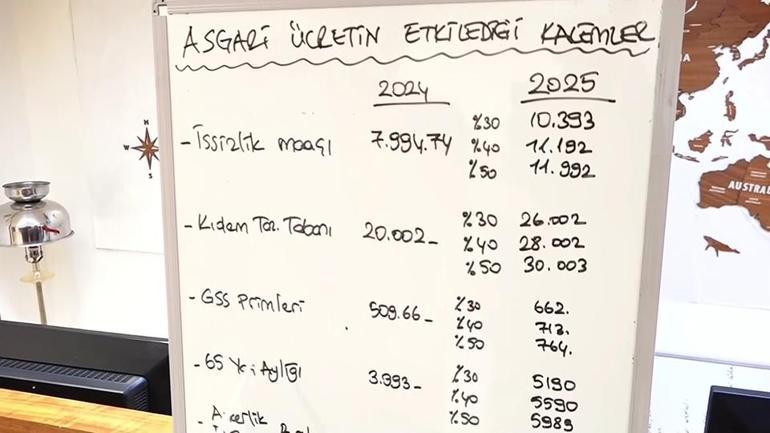 ASGARİ ÜCRETİN ETKİLEDİĞİ KALEMLER
2024 2025
- İşsizlik maaşı 7.994.74 %30 10.393
%40 11.192
%50 11.992
- Kıdem Taz. Tabanı 20.002- %30 26.002
%40 28.002
%50 30.003
- GSS Primleri 509.66- %30 662.
%40 713.
%50 764.
- 65 Yaş Aylığı 3.993- %30 5190
%40 5590
%50 5989
N
W
S
AUSTRAL